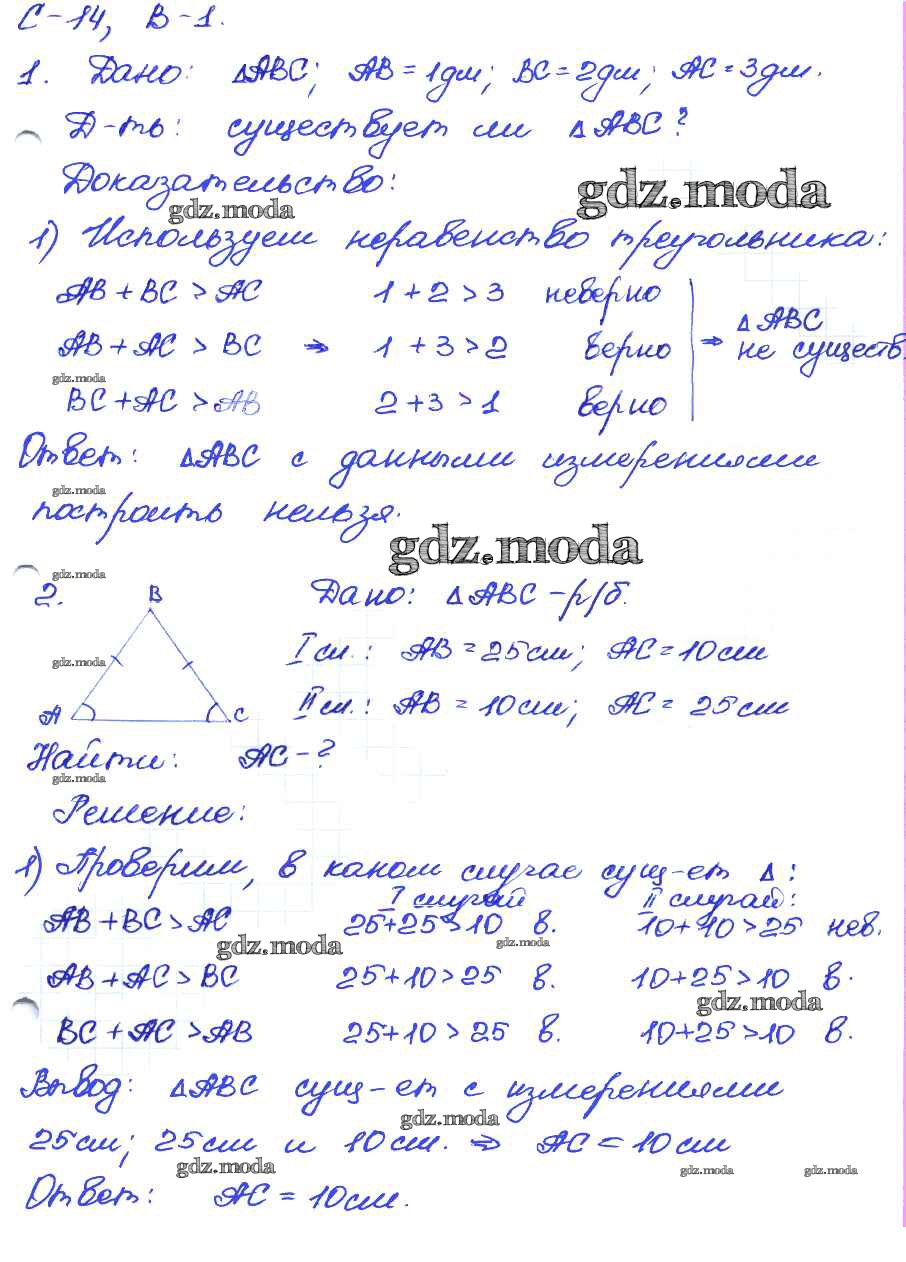 С-14, В-1.
1. Дано: ΔABC; AB=1дм; BC=2дм; AC=3дм.
Д-ть: существует ли ΔABC?
Доказательство:
gdz.moda
gdz.moda
1) Используем неравенство треугольника:
AB+BC>AC 1+2>3 неверно
ΔABC
AB+AC>BC ⇒ 1+3>2 верно ⇒ не существ.
gdz.moda
BC+AC>AB 2+3>1 верно
Ответ: ΔABC с данными измерениями
gdz.moda
построить нельзя.
gdz.moda
gdz.moda
2. B Дано: ΔABC-р/б.
I сл.: AB=25см; AC=10см
gdz.moda
A C II сл.: AB=10см; AC=25см
Найти: AC-?
gdz.moda
Решение:
1) Проверим, в каком случае сущ-ет Δ:
I случай II случай:
AB+BC>AC 25+25>10 в. 10+10>25 нев.
gdz.moda gdz.moda
AB+AC>BC 25+10>25 в. 10+25>10 в.
gdz.moda
BC+AC>AB 25+10>25 в. 10+25>10 в.
Вывод: ΔABC сущ-ет с измерениями
gdz.moda
25см; 25см и 10см. ⇒ AC=10см
gdz.moda gdz.moda gdz.moda
Ответ: AC=10см.